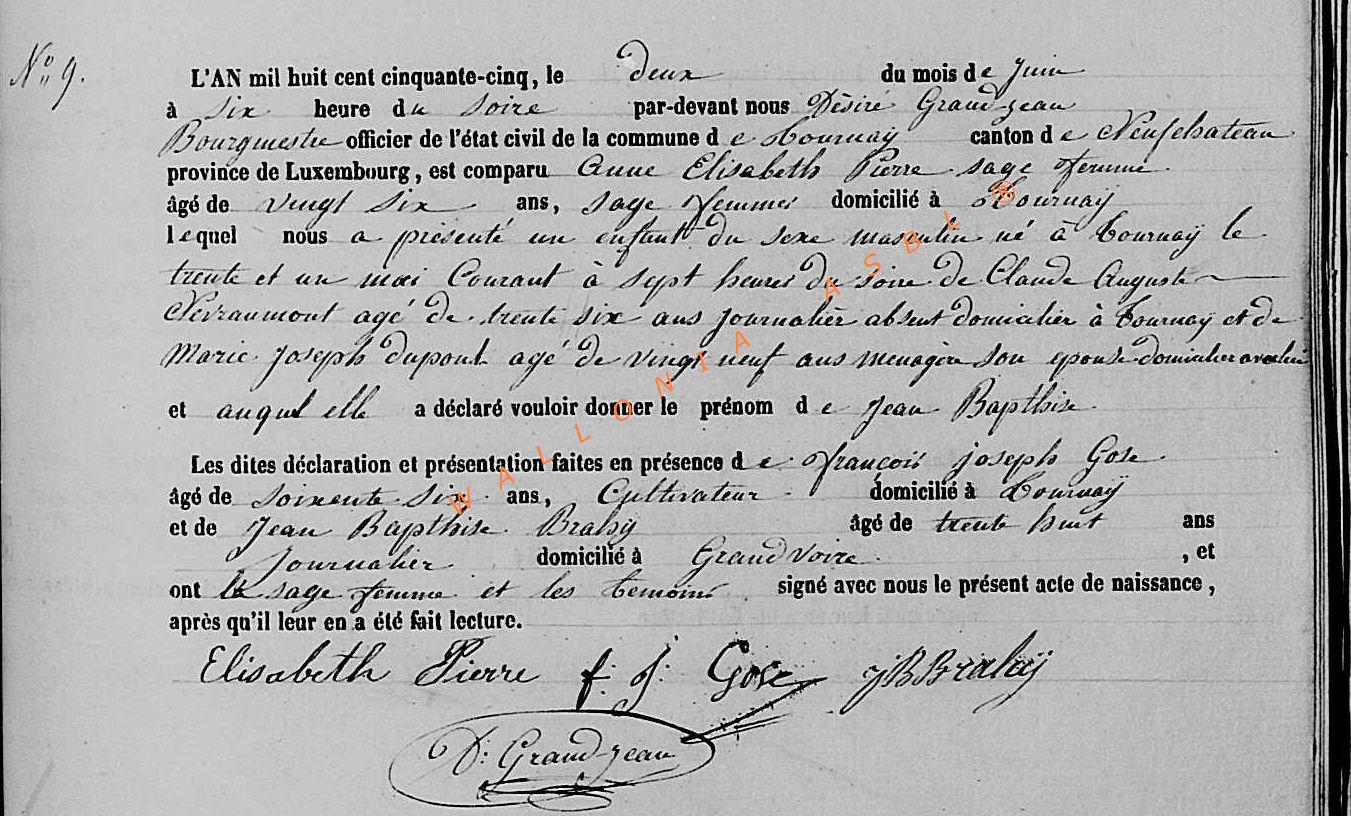 N° 9.
L'AN mil huit cent cinquante-cinq, le deux du mois de Juin
à six heure du soire par-devant nous Désiré Grandjean
Bourgmestre officier de l'état civil de la commune de Tournay canton de Neufchateau
province de Luxembourg, est comparu Anne Elisabeth Pierre sage femme
âgé de vingt six ans, sage femmes domicilié à Tournay
lequel nous a présenté un enfant du sexe masculin né à Tournaÿ le
trente et un mai Courant à sept heures du soire de Claude Auguste
Nevraumont agé de trente six ans journalier absent domicilier à Tournaÿ et de
Marie Joseph dupont agé de vingt neuf ans menagère son epouse domicilier
et auquel elle a déclaré vouloir donner le prénom de Jean Bapthise
Les dites déclaration et présentation faites en présence de françois joseph Gose
âgé de soixente six ans, Cultivateur domicilié à Tournaÿ
et de Jean Bapthise Bralaÿ âgé de trente huit ans
Journalier domicilié à Grandvoire , et
ont la sage femme et les temoins signé avec nous le présent acte de naissance,
après qu'il leur en a été fait lecture.
Elisabeth Pierre f. j. Gose JBBralaÿ
D: Grandjean
WALLONIA ASBL ®